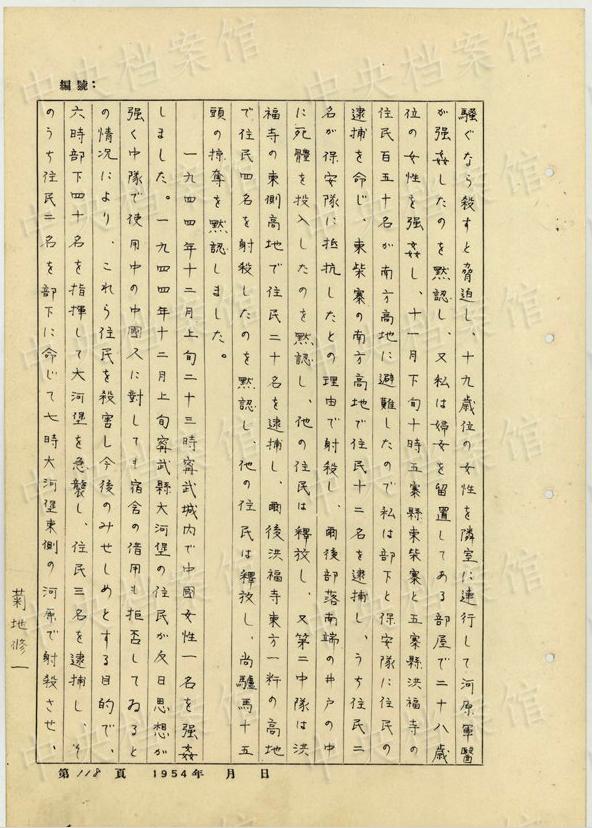 編號：
騒ぐなら殺すと脅迫し、十九歳位の女性を隣室に連行して河原軍醫
が强姦したのを黙認し、又私は婦女を留置してある部屋で二十八歳
位の女性を强姦し、十一月下旬十時五寨縣東柴寨と五寨縣洪福寺の
住民百五十名が南方高地に避難したので私は部下と保安隊に住民の
逮捕を命じ、東柴寨の南方高地で住民十二名を逮捕し、うち住民二
名が保安隊に抵抗したとの理由で射殺し、爾後部落南端の井戸の中
に死體を投入したのを黙認し、他の住民は釋放し、又第二中隊は洪
福寺の東側高地で住民二十名を逮捕し、爾後洪福寺東方一粁の高地
で住民四名を射殺したのを黙認し、他の住民は釋放し、尚驢馬十五
頭の掠奪を黙認しました。
一九四四年十二月上旬二十三時寗武城内で中國女性一名を强姦
しました。一九四四年十二月上旬寗武縣大河堡の住民が反日思想が
强く中隊で使用中の中國人に対しても宿舎の借用も拒否してゐると
の情况により、これら住民を殺害し今後のみせしめとする目的で、
六時部下四十名を指揮して大河堡を急襲し、住民三名を逮捕し、そ
のうち住民二名を部下に命じて七時大河堡東側の河原で射殺させ、
菊地修一
第118頁 1954年 月 日
中央档案馆